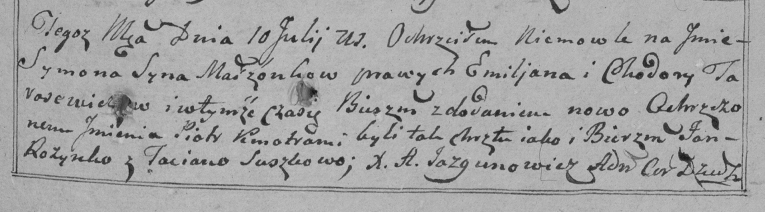 Tegoż Mca Dnia 10 Julij V.S. Ochrzciłem Niemowle na Jmie-
Symona Syna Małżonkow prawych Emiljana i Chodory Ta
rasewiczow i wtymże czasie Bierzm z dodaniem nowo Ochrzczo
nemu Jmienia Piotr Kmotrami byli tak chrztu iako i Bierzm Jan-
Rożynko z Tacianą Suszkową; X. A. Jazgunowicz Adm Cer Dzedz